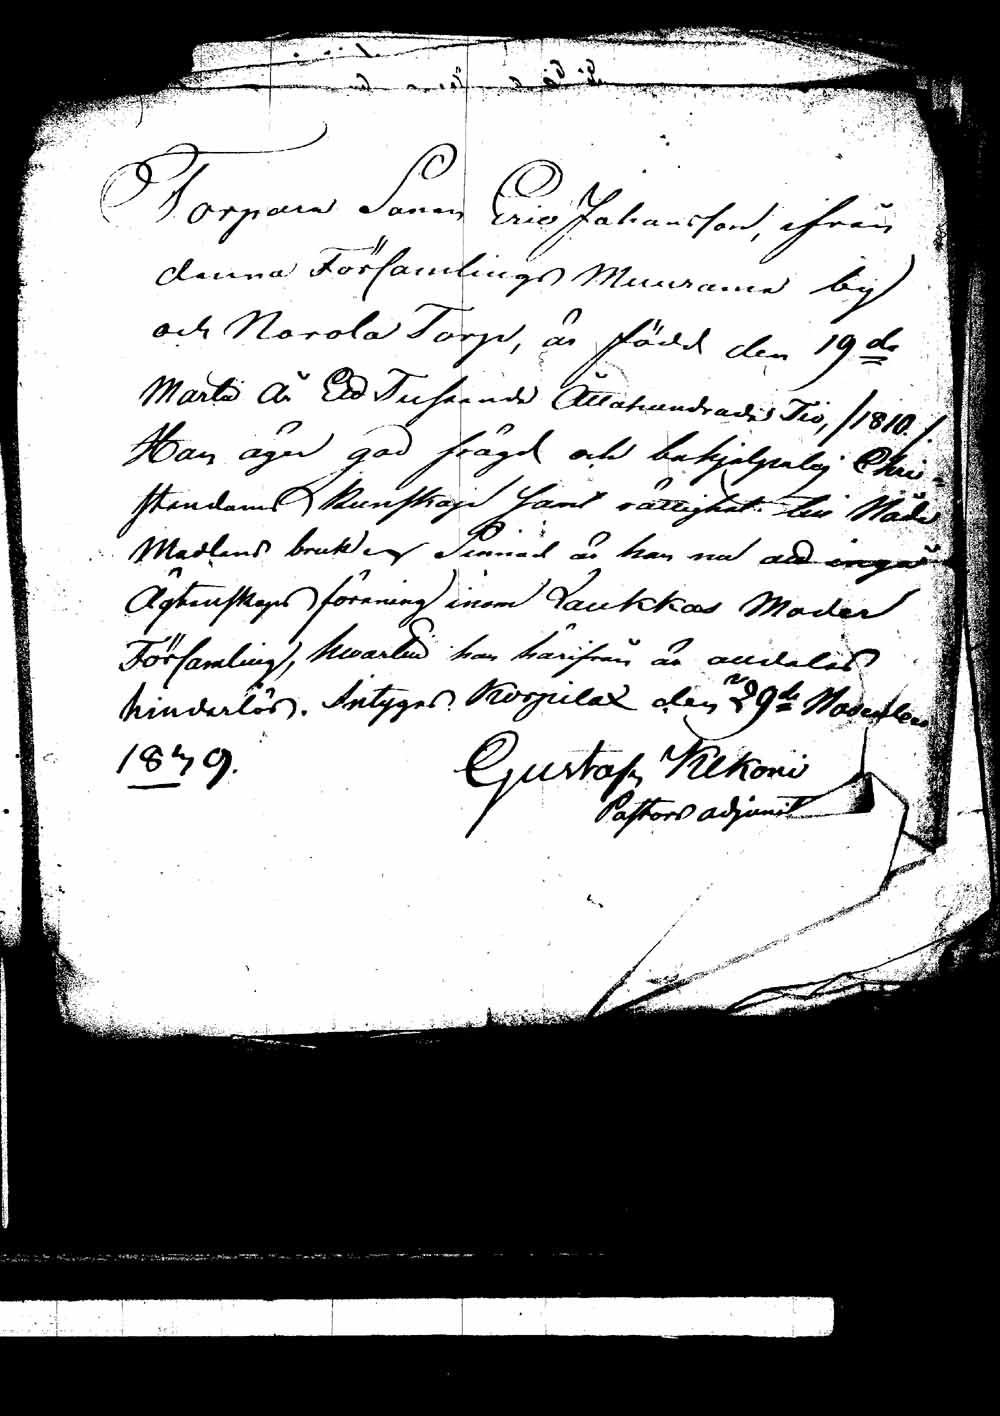 Torpare Sonen Eric Johansson, ifrån
denna Församlings Muurame by
och Norola Torp, är född den 19de
Martii År Ett Tusende Åttahundrade Tio, /1810./
Han äger god frägd och behjelpelig Chri-
stendoms Kunskap samt rättighet till Nåde
Medlens bruk; Sinnad är han nu att ingå
Ägtenskaps förening inom Laukkas Moder
Församling, hwartill han härifrån är aldeles
hinderlös. Intygas Korpilax den 29de November
1839.
Gustaf Kekoni
Pastors adjunct